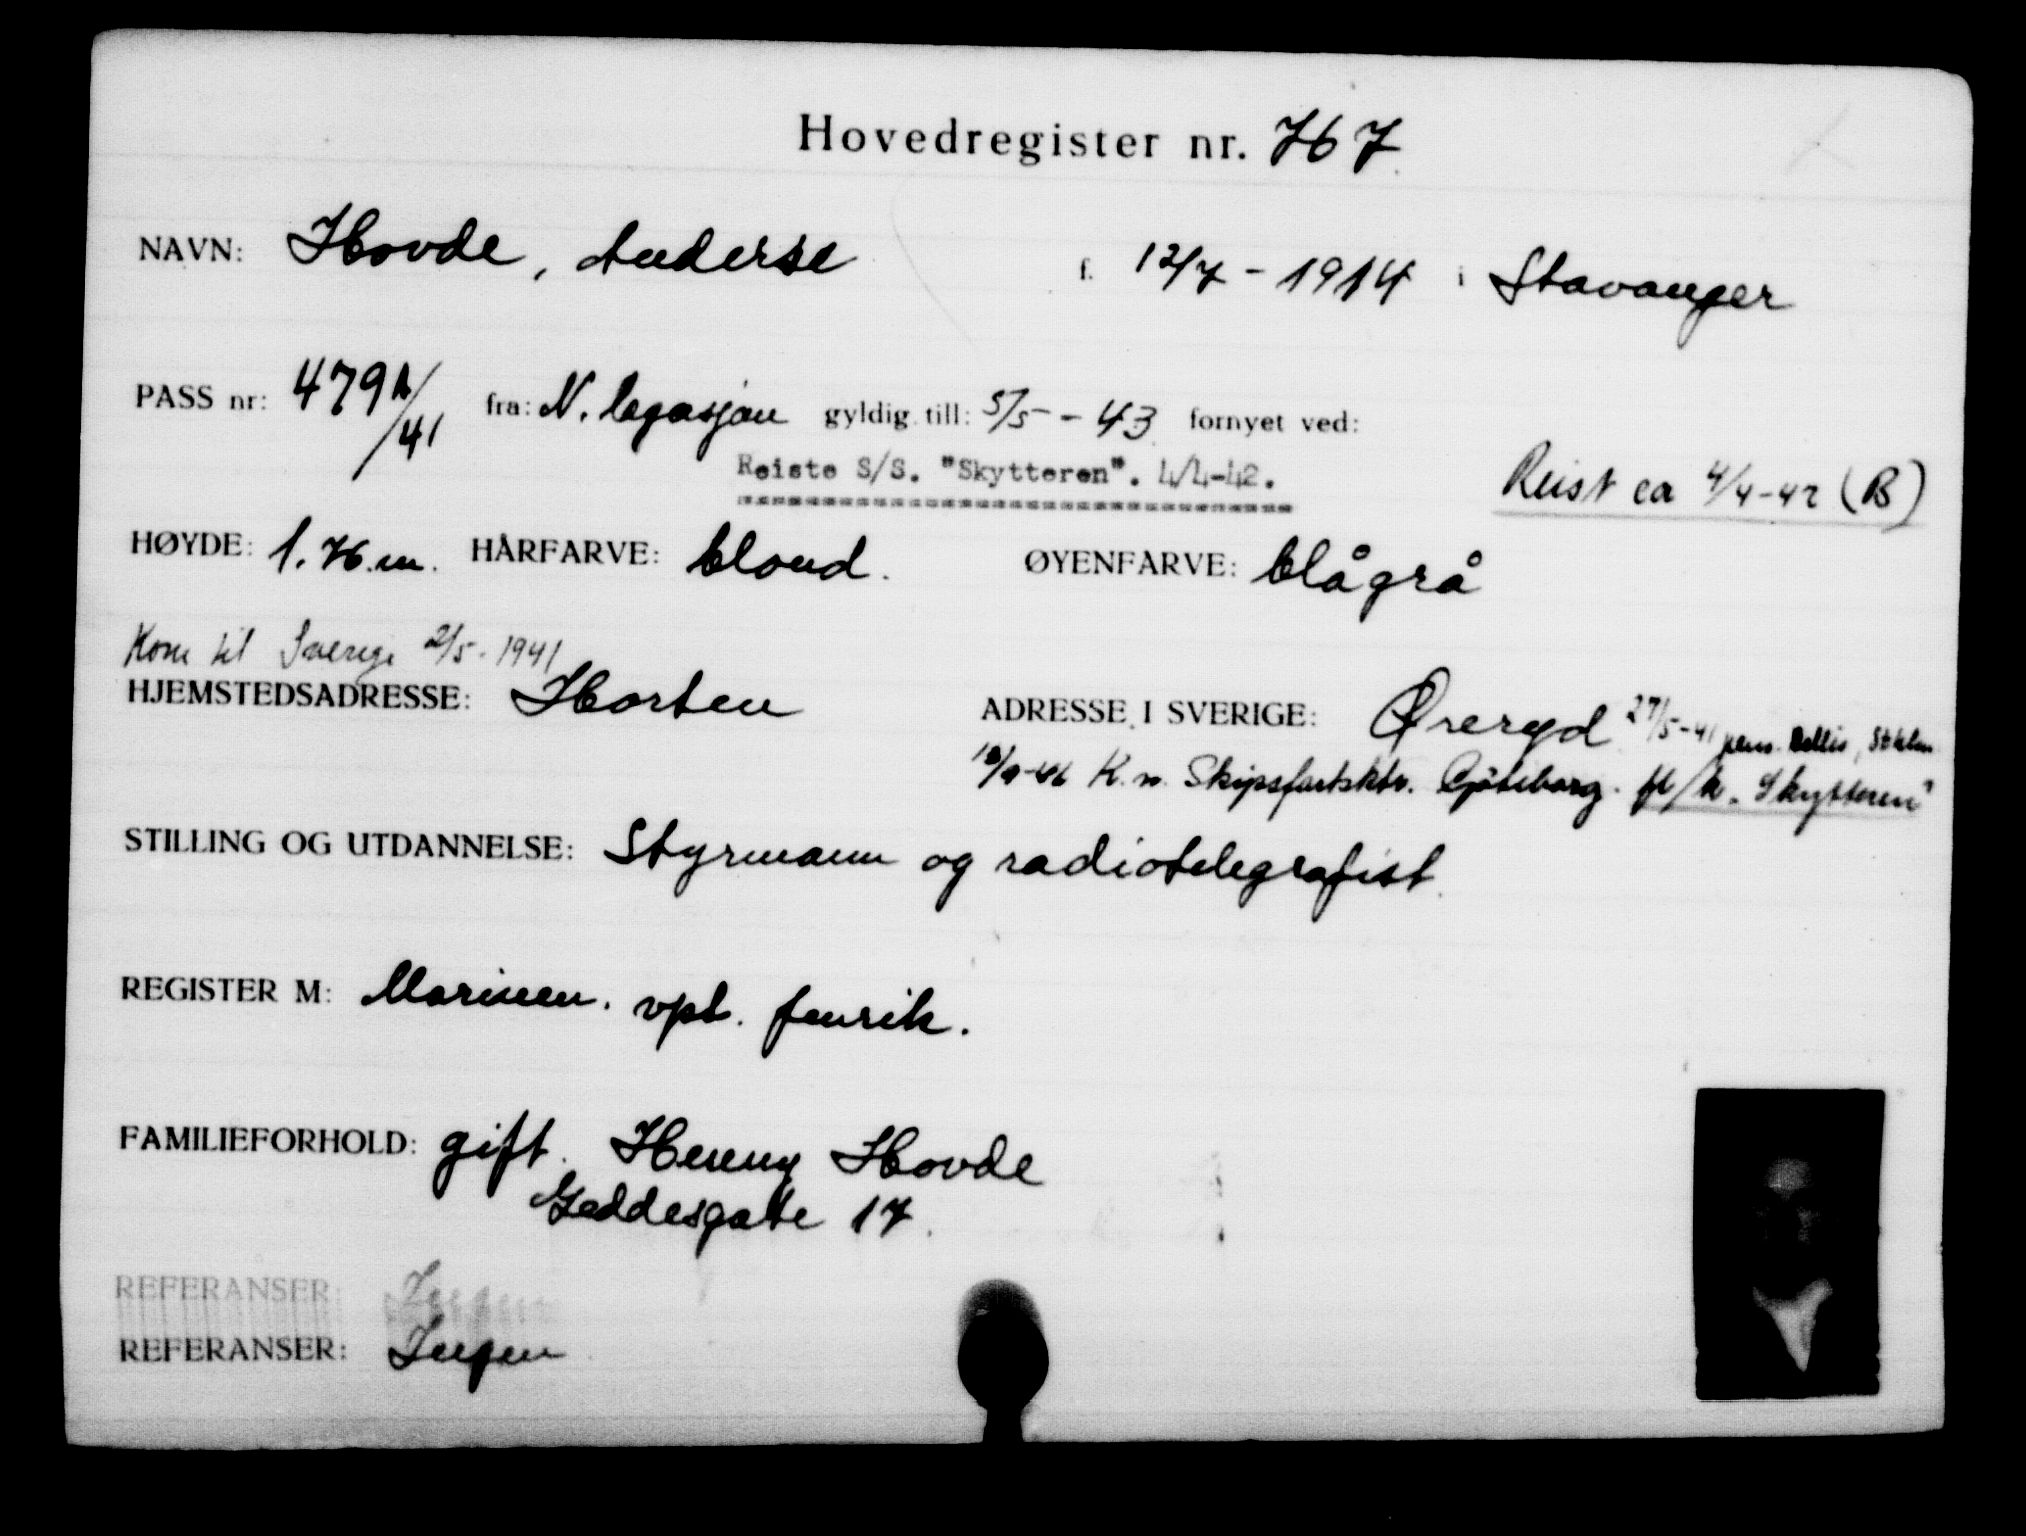 Hovedregister nr. 767
NAVN: Hovde, Anderse f. 12/7 - 1914 i Stavanger
PASS nr: 479A/41 fra: N. legasjon gyldig till: 5/5 - 43 fornyet ved:
Reiste S/S. "Skytteren". 4/4-42.
Reist ca 4/4-42 (B)
HØYDE: 1.76.m. HÅRFARVE: blond. ØYENFARVE: blågrå
Kom til Sverige 2/5-1941
HJEMSTEDSADRESSE: Horten ADRESSE I SVERIGE: Øreryd 27/5-41 pens. , Sthlm
K. n. Skipsfartsktr. Gøteborg. fl/k. "Skytteren"
STILLING OG UTDANNELSE: Styrmann og radiotelegrafist.
REGISTER M: Marinen. vpl. fenrik.
FAMILIEFORHOLD: gift. Henny Hovde
Geddesgate 17.
REFERANSER: Ingen
REFERANSER: Ingen